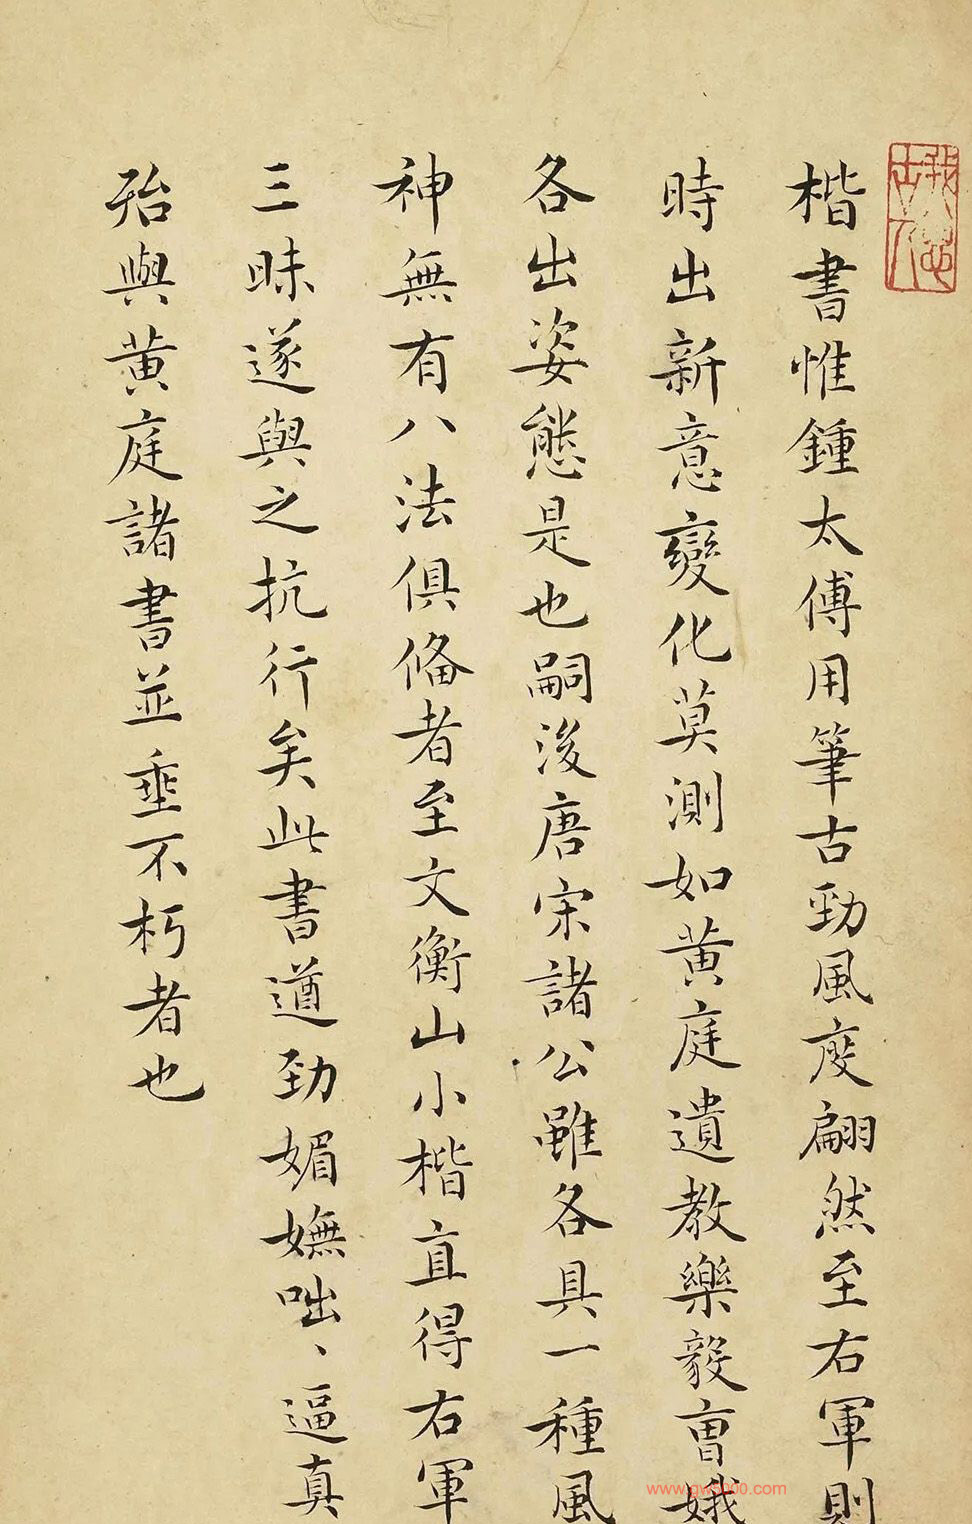 楷書惟鍾太傅用筆古勁風度翩然至右軍則
時出新意變化莫測如黄庭遺教樂毅曺娥
各出姿態是也嗣後唐宋諸公雖各具一種風
神無有八法俱俻者至文衡山小楷直得右軍
三昧遂與之抗行矣此書遒勁媚嫵咄〻逼真
殆與黄庭諸書並垂不朽者也
www.gw5000.com